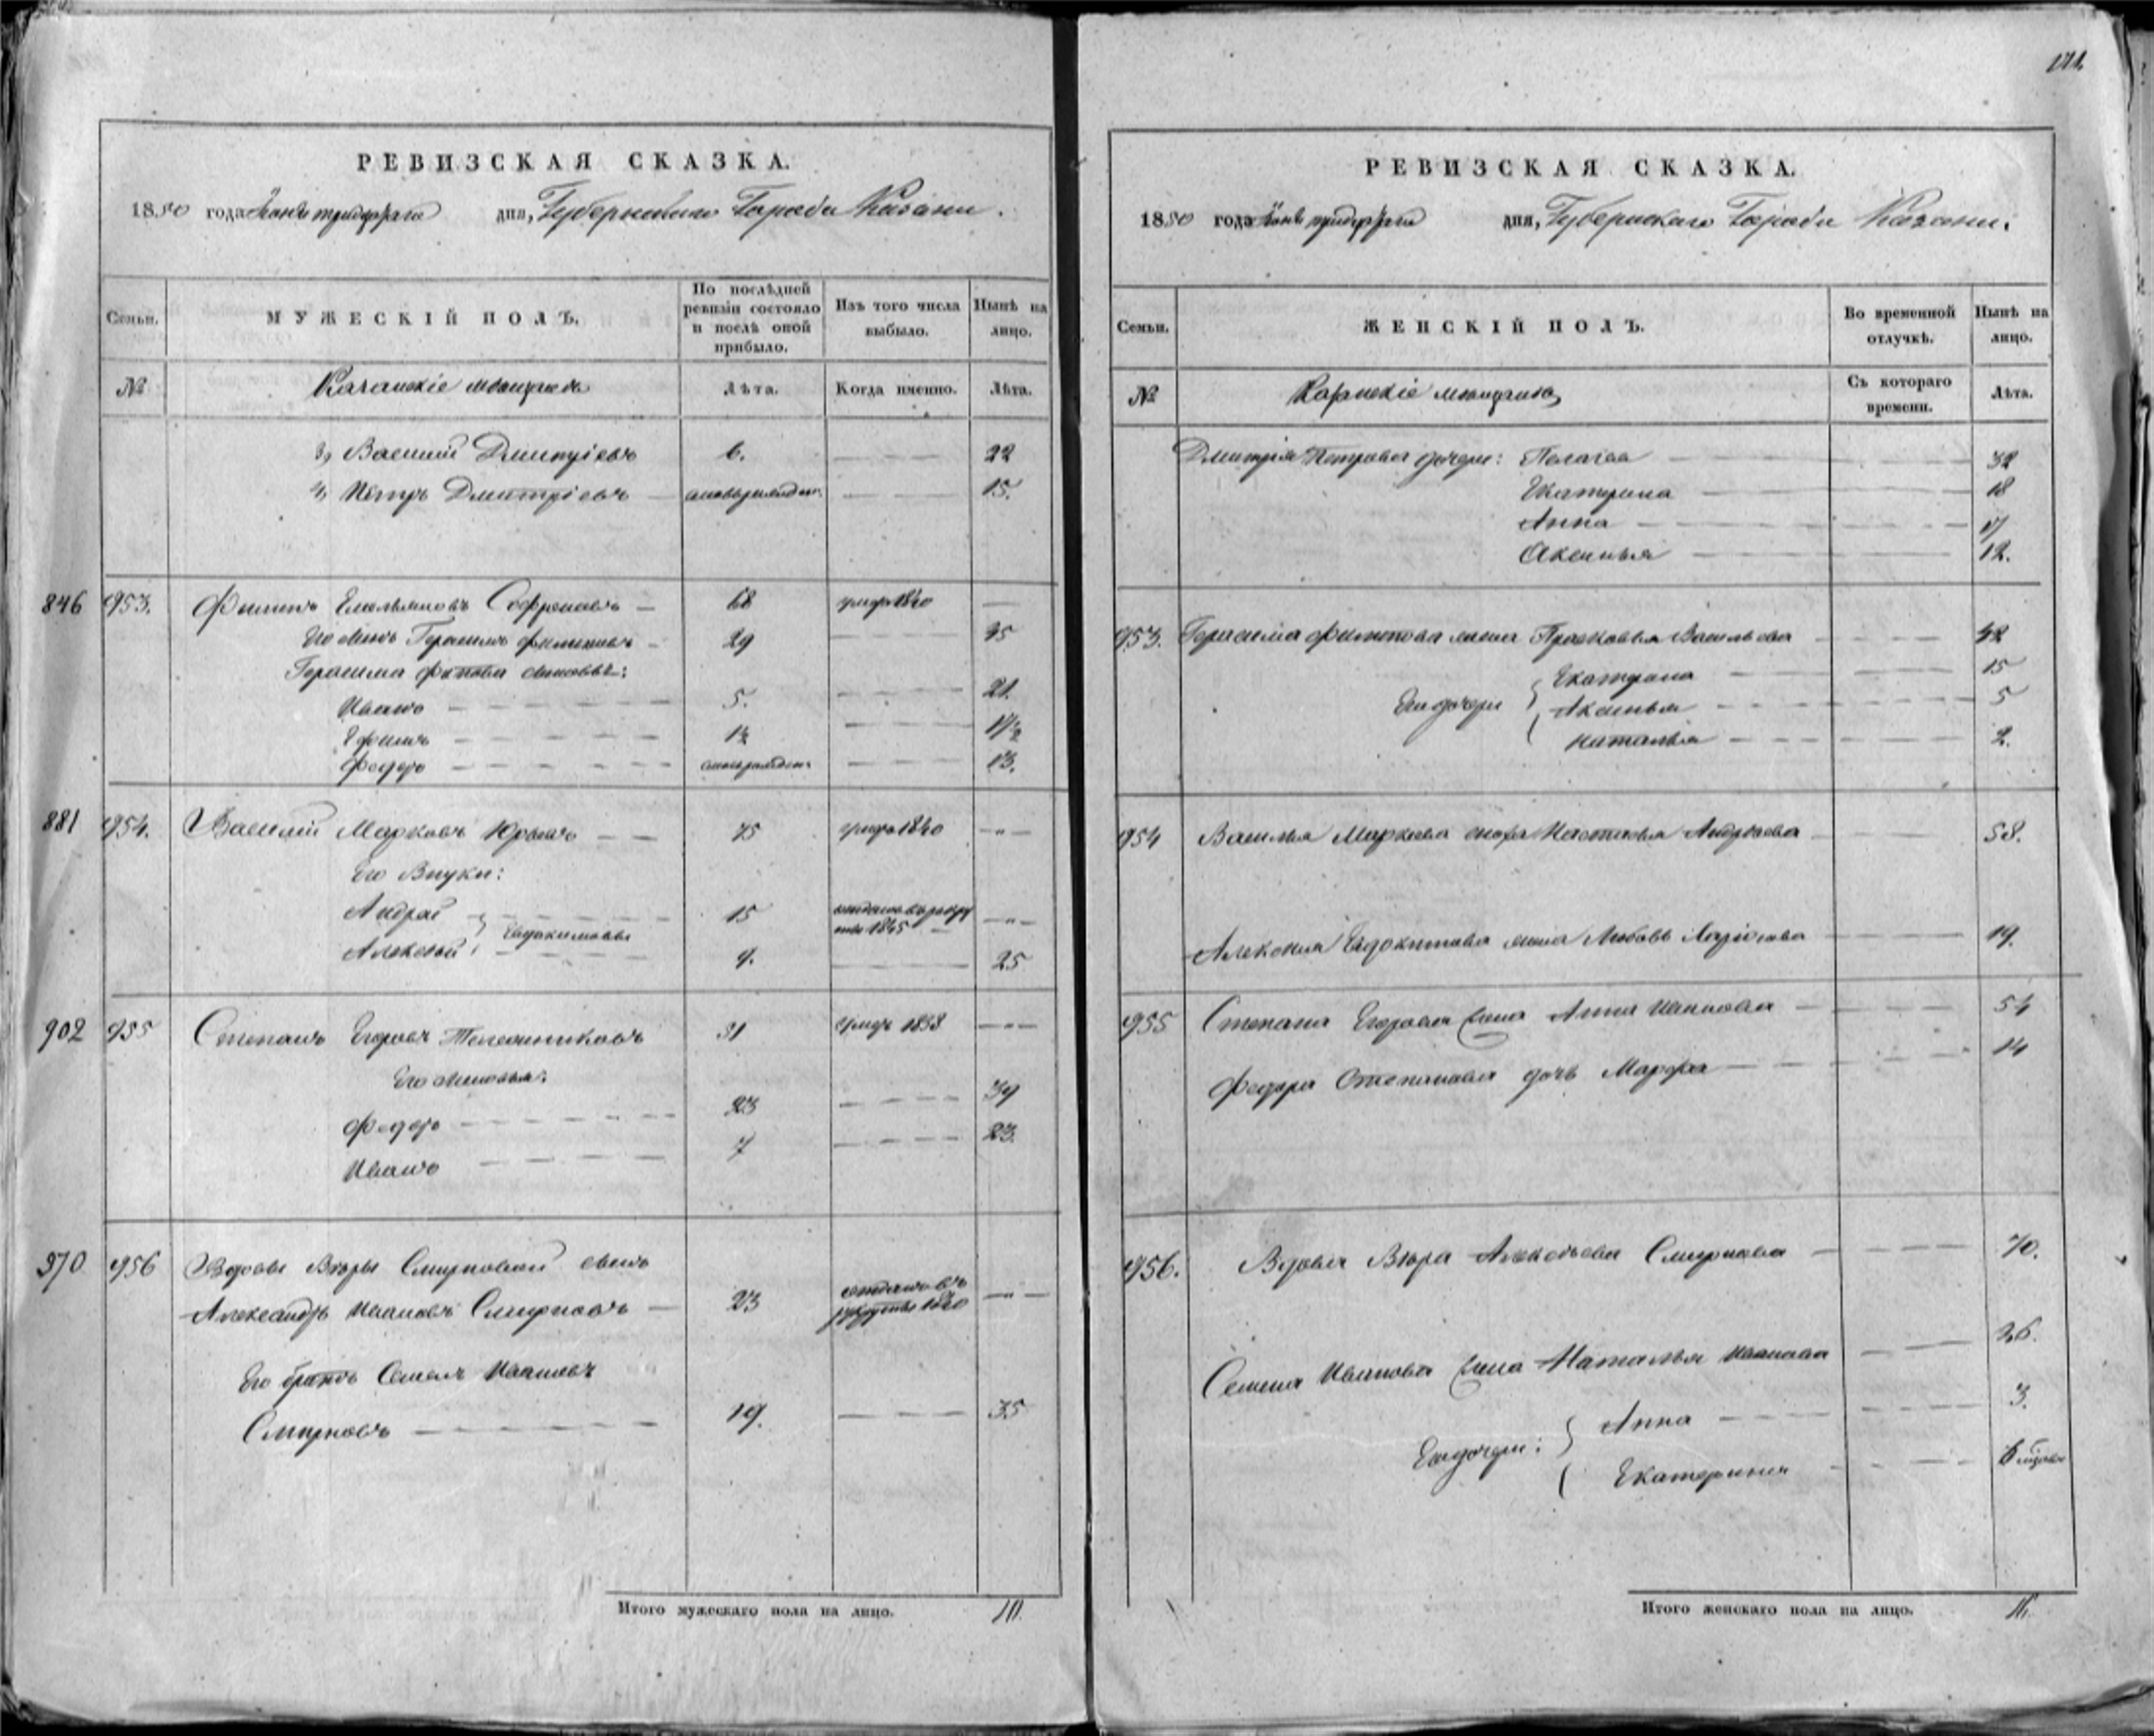 РЕВИЗСКАЯ СКАЗКА.
1850 года дня, Губернскаго Города Казани.
Семьи.
МУЖЕСКІЙ ПОЛЪ.
По послѣдней ревизіи состояло и послѣ оной прибыло.
Изъ того числа выбыло.
Нынѣ на лицо.
№
Казанскіе мѣщане
Лѣта.
Когда именно.
Лѣта.
3, Василій Дмитріевъ 6. 22
4, Петръ Дмитріевъ 15.
846 953. Филипъ Емельяновъ Софроновъ 68 умеръ 1840
Его сынъ Герасимъ Филиповъ 29 45
Герасима Филипова сыновья:
Иванъ 5. 21.
Ефимъ 1½ 17½
Федоръ 13.
881 954. Василій Марковъ 75 умеръ 1840
Его Внуки:
Андрей 15 отданъ въ рекруты 1845
Евдокимовы
Алексѣй 9. 25
902 955 Степанъ Егоровъ 51 умеръ 1838
Его сыновья:
Федоръ 23 39
Иванъ 7 23.
970 956 Вдовы Вѣры Смирновой сынъ
Александръ Ивановъ Смирновъ 23 отданъ въ рекруты 1840
Его братъ Семенъ Ивановъ
Смирновъ 19. 35
Итого мужескаго пола на лицо. 10.
РЕВИЗСКАЯ СКАЗКА.
1850 года дня, Губернскаго Города Казани.
Семьи.
ЖЕНСКІЙ ПОЛЪ.
Во временной отлучкѣ.
Нынѣ на лицо.
№
Казанскіе мѣщане
Съ котораго времени.
Лѣта.
Дмитрія Петрова дочери: Пелагея 32
Екатерина 18
Анна 17
Аксинья 12.
953. Герасима Филипова жена Прасковья Васильева 42
Екатерина 15
Его дочери Аксинья 5
Наталья 2.
954 Василья Маркова сноха Настасья Андреева 58.
Алексѣя Евдокимова жена Любовь 19.
955 Степана Егорова жена Анна Иванова 54
Федора Степанова дочь Марфа 14
956. Вдова Вѣра Алексѣева Смирнова 70.
Семена Иванова жена Наталья Иванова 26.
Анна 3.
Его дочери:
Екатерина 6
Итого женскаго пола на лицо. 16.